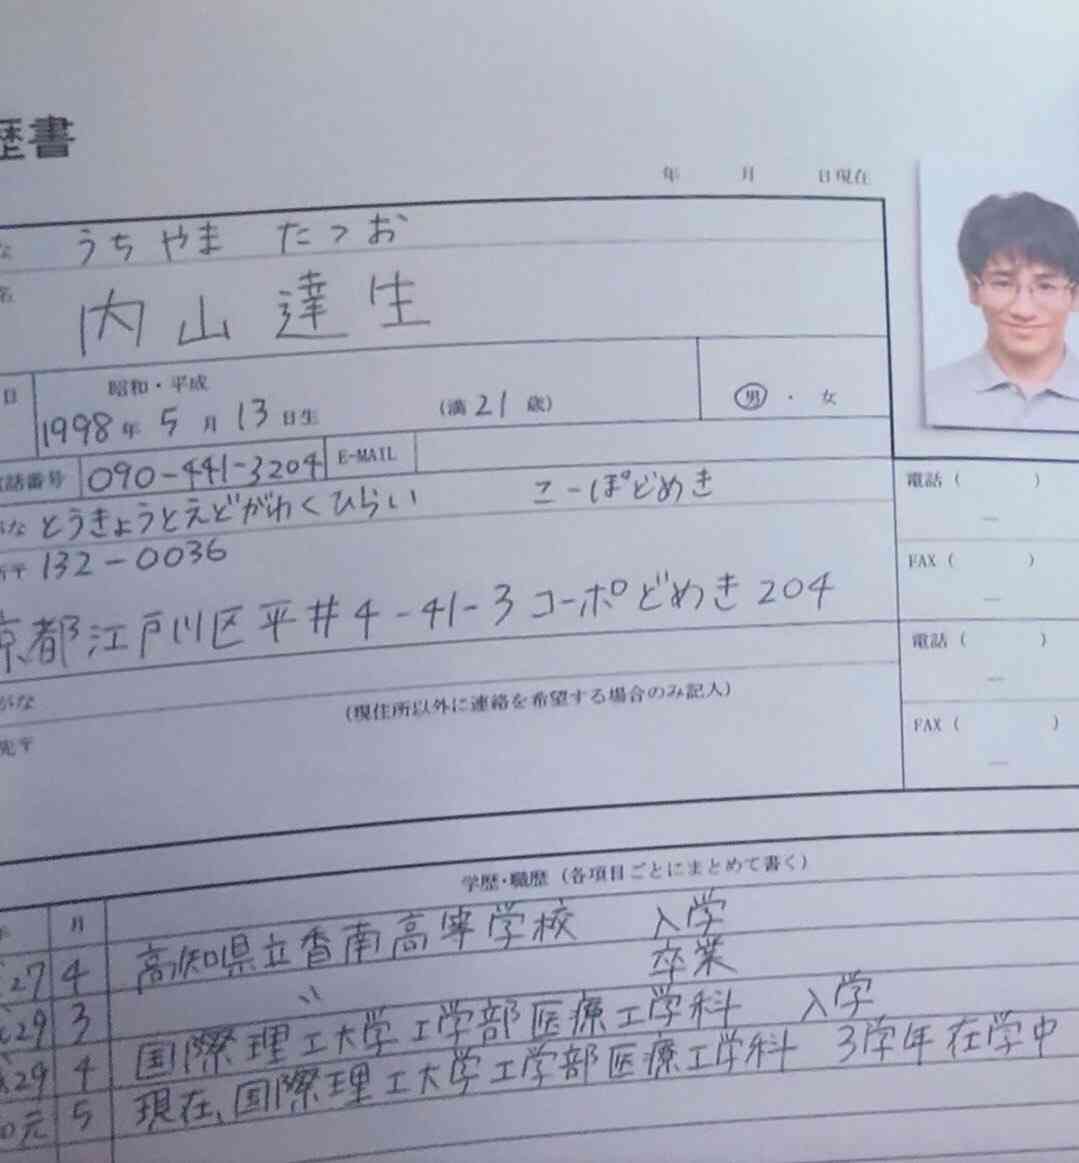 歴書
年 月 日現在
な うちやま たつお
名 内山達生
日 昭和・平成
1998年 5月 13日生 (満 21 歳) 男・女
電話番号 090-441-3204 E-MAIL
がな とうきょうとえどがわくひらい こーぽどめき
所〒 132-0036
京都江戸川区平井4-41-3コーポどめき204
電話 ( )
FAX ( )
電話 ( )
がな (現住所以外に連絡を希望する場合のみ記入)
先〒
FAX ( )
学歴・職歴 (各項目ごとにまとめて書く)
年 月
27 4 高知県立香南高等学校 入学
29 3 〃 卒業
29 4 国際理工大学工学部医療工学科 入学
元 5 現在、国際理工大学工学部医療工学科 3学年在学中